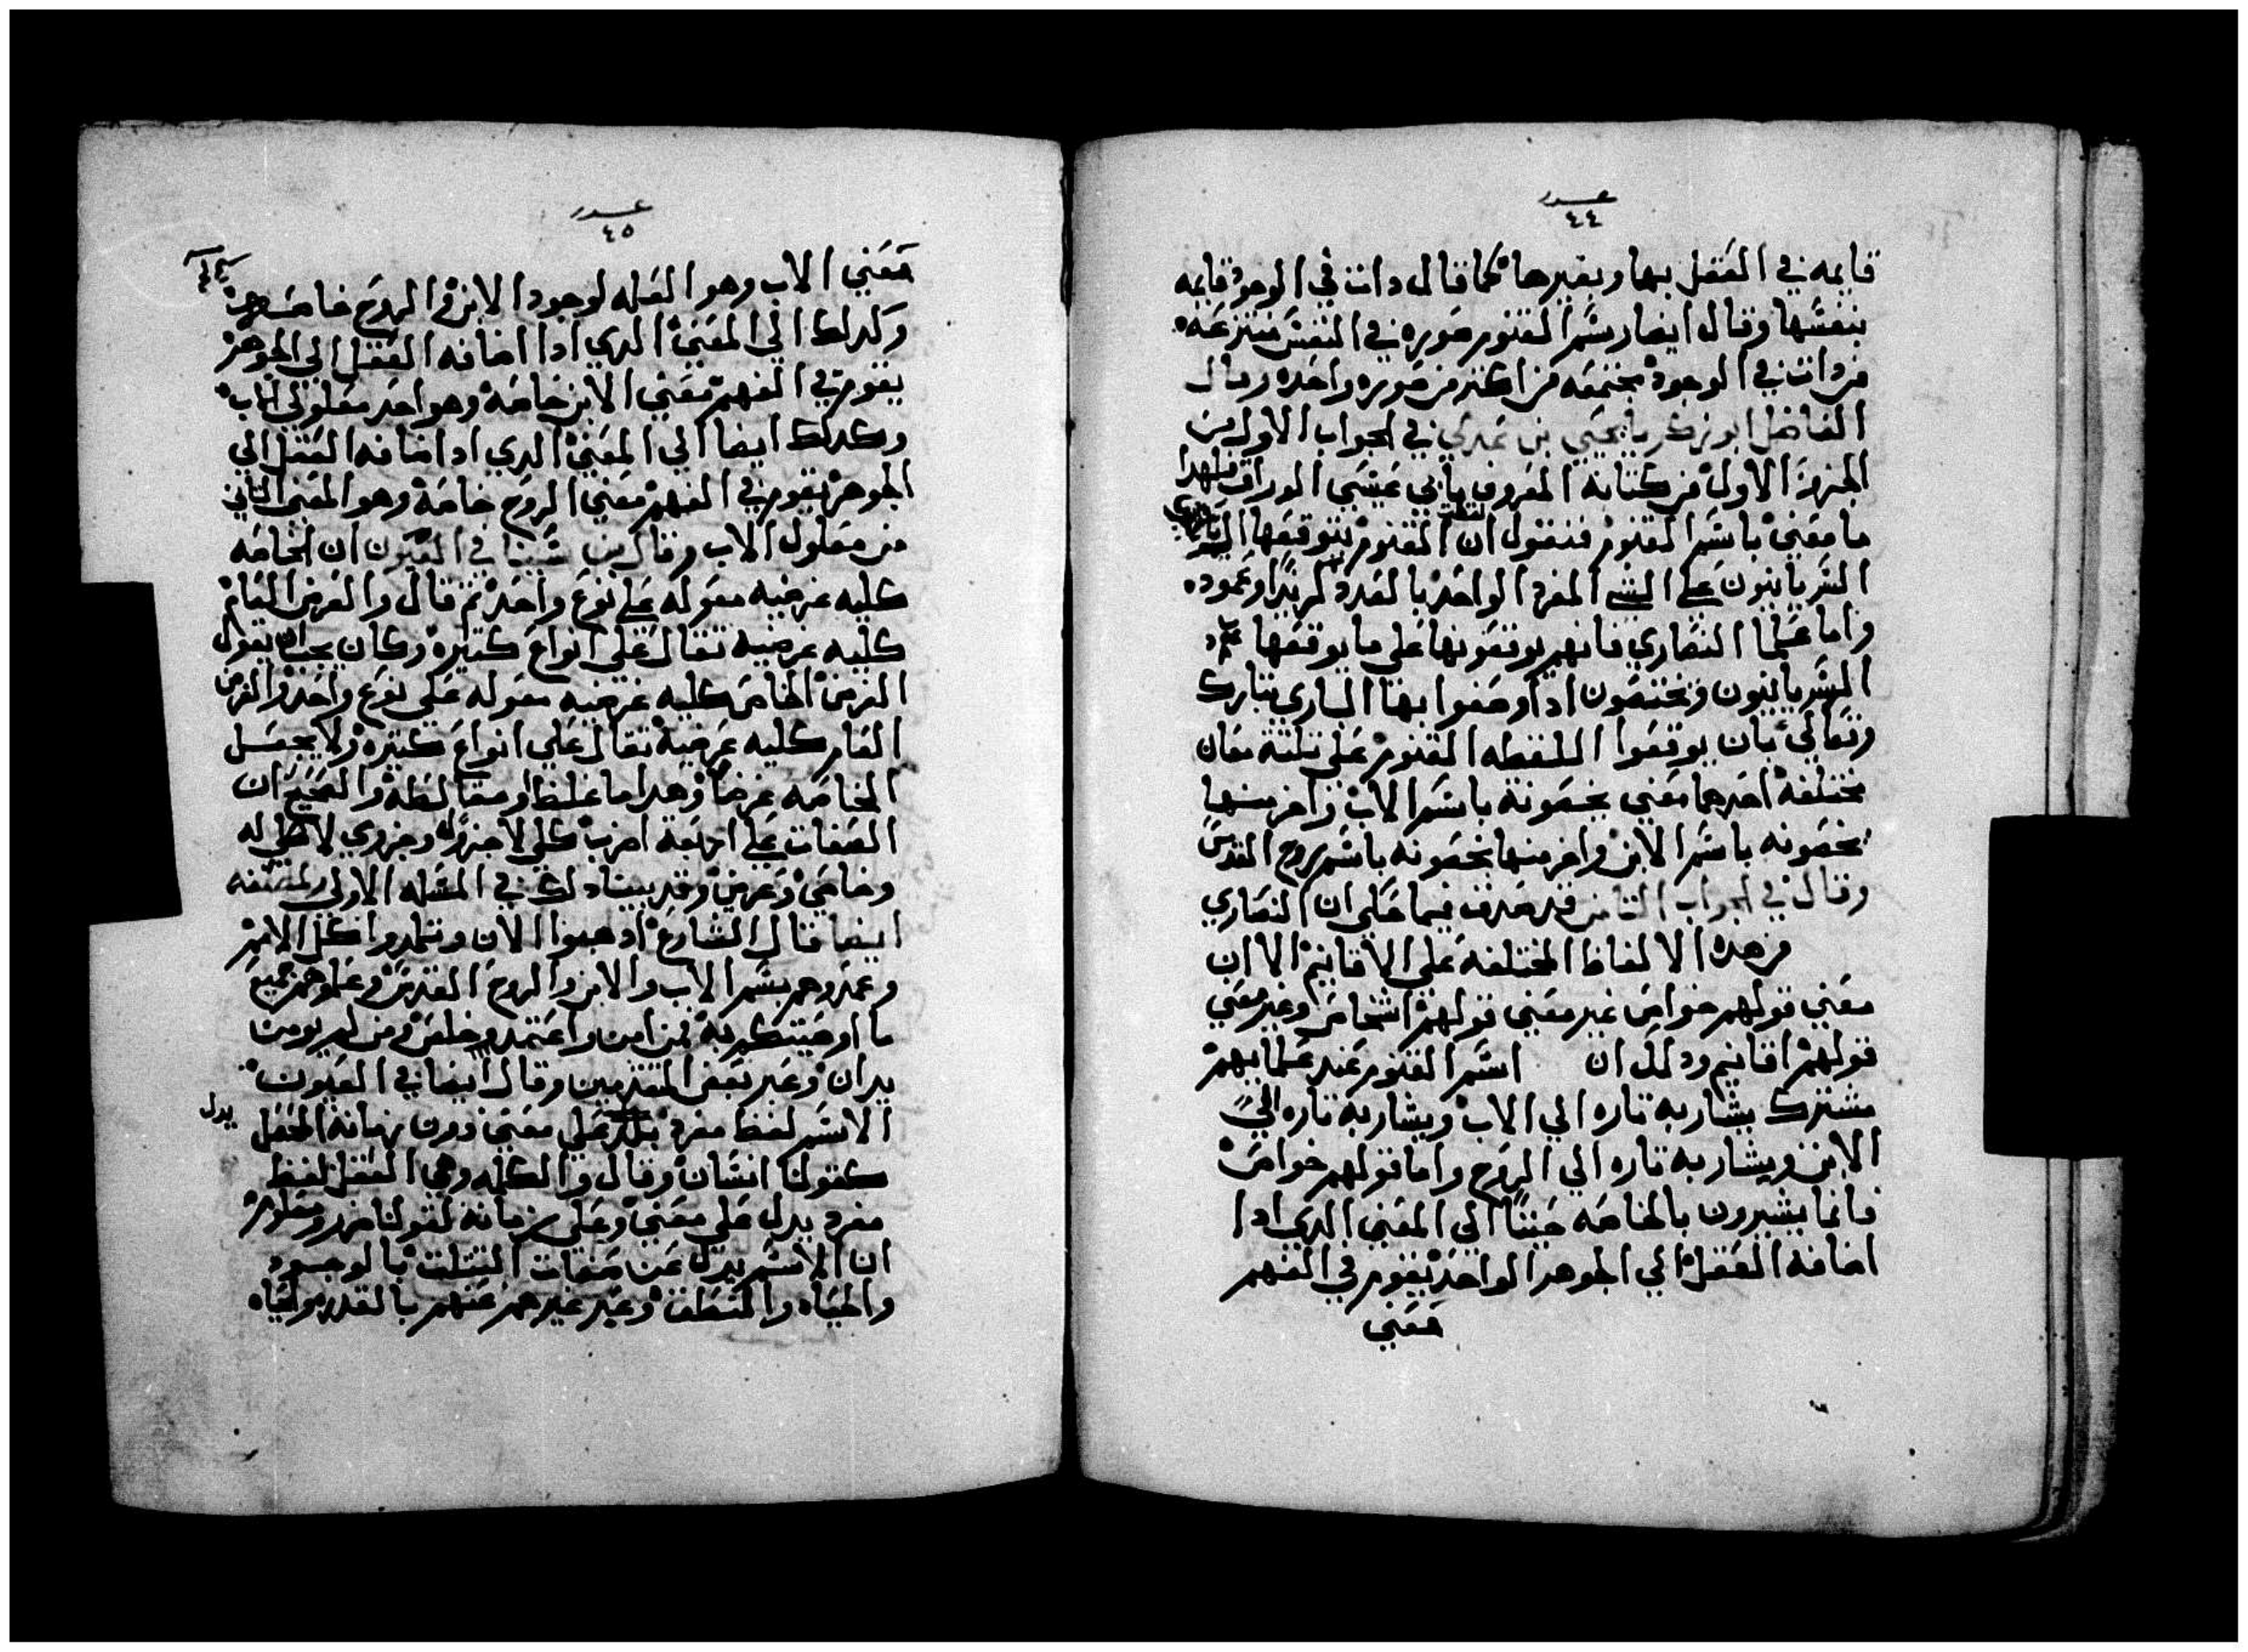 عدد
٤٤
قايمه في العقل بها وبغيرها كما قال دات في الوجود قايمه
بنفسها وقال ايضا رسم القنوم صوره في النفس منتزعه
من دات في الوجود مجتمعه من اكتر من صوره واحده وقال
الفاضل ابو زكريا يحيي بن عدي في الجواب الاول من
الجزء الاول من كتابه المعروف بابي عيسي الوراق فلهدا
ما معني باسم القنوم فنقول ان القنوم يوقعها
السريانيون علي الشي المفرد الواحد بالعدد كزيد وعمود
واما علما النصاري فانهم يوقعونها علي ما يوقعها
السريانيون ويختصون ادا وصفوا بها الباري تبارك
وتعالي بان يوقعوا اللفظه القنوم علي تلتة معان
مختلفة احدها معني يخصونه باسم الاب واخر منها
يخصونه باسم الابن واخر منها يخصونه باسم روح القدس
وقال في الجواب التامن قد صدق فيما حكي ان النصاري
من هده الالفاظ المختلفه علي الاقانيم الا ان
معني قولهم خواص غير معني قولهم اشخاص وغير معني
قولهم اقانيم ودلك ان اسم القنوم عند علمايهم
مشترك يشار به تاره الي الاب ويشار به تاره الي
الابن ويشار به تاره الي الروح واما قولهم خواص
فانما يشيرون بالخاصه الي المعني الدي ادا
اضافه العقل الي الجوهر الواحد يقوم في الفهم
معني
عدد
٤٥
معني الاب وهو العله لوجود الابن والروح خاصه
وكدلك الي المعني الدي ادا اضافه العقل الي الجوهر
يقوم في الفهم معني الابن خاصة وهو احد معلولي الاب
وكدلك ايضا الي المعني الدي ادا اضافه العقل الي
الجوهر يقوم في الفهم معني الروح خاصة وهو المعني التاني
من معلول الاب وقال بن سينا في العيون ان الخاصه
كليه عرضيه مقوله علي نوع واحد تم قال والعرض العام
كليه عرضيه تقال علي انواع كتيره وكان يجب ان يقول
العرض الخاص كليه عرضيه مقوله علي نوع واحد والعرض
العام كليه عرضية تقال علي انواع كتيره ولا يجعل
الخاصه عرضا وهدا اما غلط او مغالطه والصحيح ان
الصفات علي اربعة اضرب كلي لا جزء له وجزوي لا كل له
وخاصي وعرضي وقد بينا دلك في المسله الاولي
ايضا قال الشارع ادهبوا الان وتلمدوا كل الامم
وعمدوهم بسم الاب والابن والروح القدس وعلموهم جميع
ما اوصيتكم به فمن امن واعتمد خلص ومن لم يومن
يدان وعبر بعض المتقدمين وقال ايضا في العيون
الاسم لفظ مفرد يدل علي معني دون زمانه المحصل
يدل
كقولنا انسان وقال والكلمه وهي الفعل لفظ
مفرد يدل علي معني وعلي زمانه كقولنا ومعلوم
ان الاسم يدل عن صفات التتلت بالوجود
والحياه والنطق وعبر غيرهم عنهم بالقدم والحياه